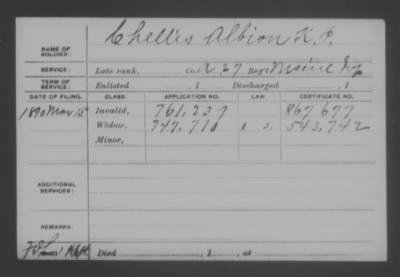 Chellis Albion K. P.
NAME OF SOLDIER:
SERVICE: Late rank, Co. A 27 Reg't Maine Inf
TERM OF SERVICE: Enlisted , 1 Discharged , 1
DATE OF FILING. CLASS. APPLICATION NO. LAW. CERTIFICATE NO.
1890 May 15 Invalid, 761,239 867677
Widow, 747,710 543,742
Minor,
ADDITIONAL SERVICES:
REMARKS:
Died , 1 , at